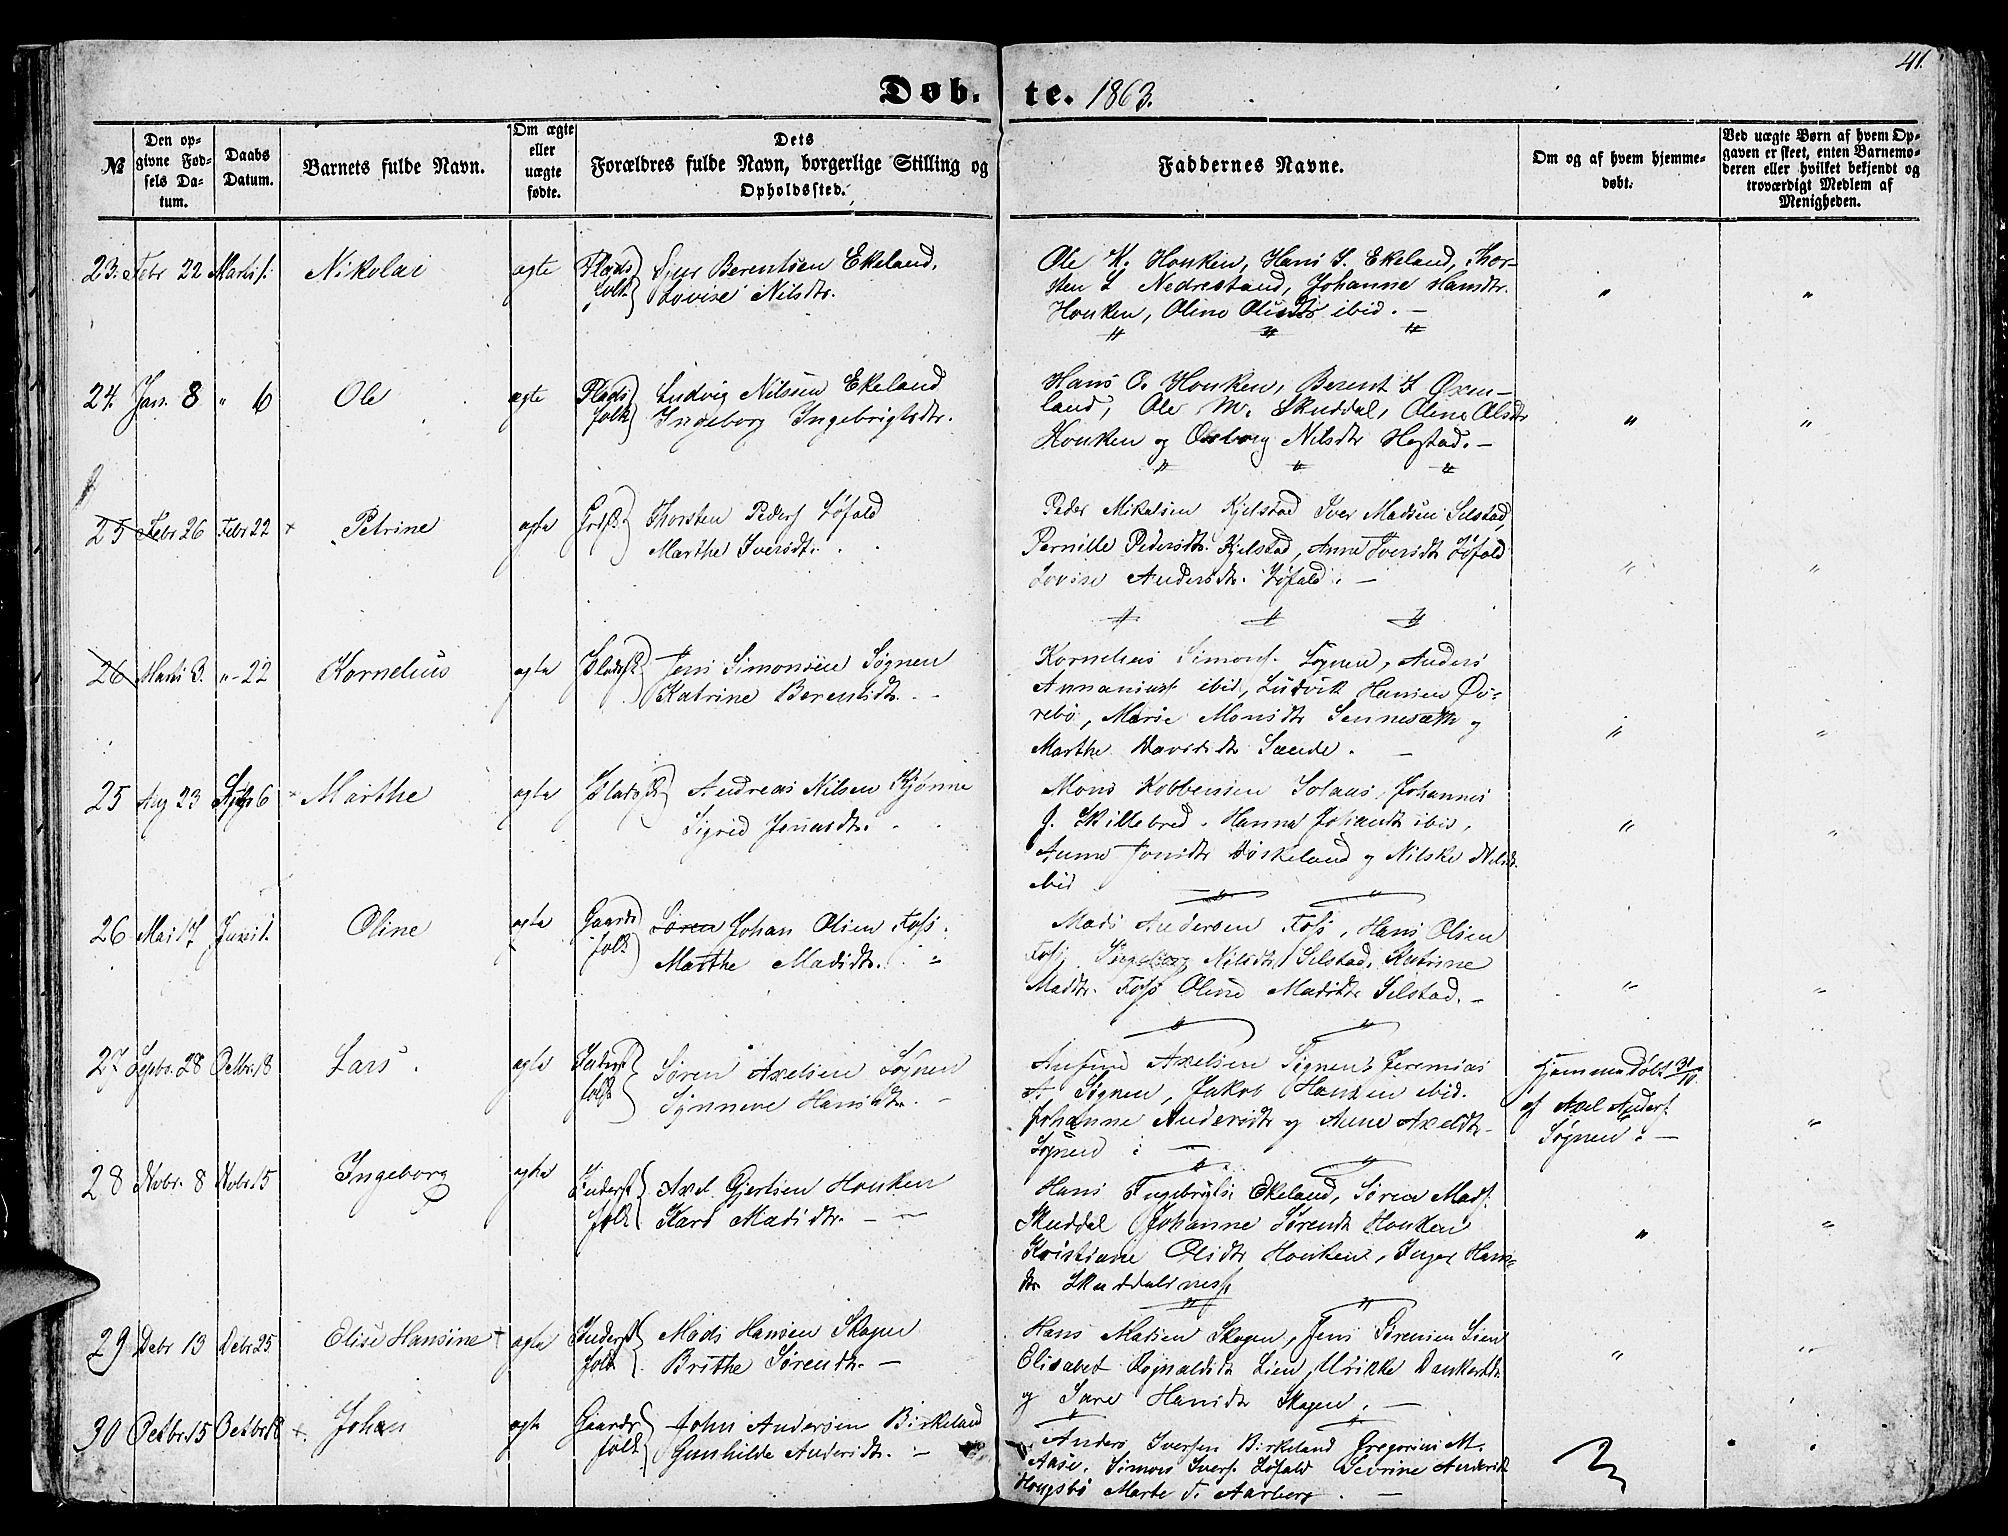 41.
Døb- te. 1863.
№
Den opgivne Fødsels Datum.
Daabs Datum.
Barnets fulde Navn.
Om ægte eller uægte fødte.
Dets Forældres fulde Navn, borgerlige Stilling og Opholdssted.
Faddernes Navne.
Om og af hvem hjemmedøbt.
Ved uægte Børn af hvem Opgaven er skeet, enten Barnemoderen eller hvilket bekjendt og troværdigt Medlem af Menigheden.
23. Febr 22 Nikolai ægte Plads folk Berentsen Ekeland.
Lovise Nilsdtr.
Ole M. Houken, Hans S. Ekeland, Thor-
sten S Nedrestand, Johanne Hansdtr.
Houken, Oline Olsdtr ibid. —
24. Jan. 8 " 6 Ole ægte Plads folk Ludvig Nilsen Ekeland
Ingeborg Ingebrigtsdtr.
Hans O. Houken, Berent S Øxen-
land, Ole M. Skuddal, Oline Olsdtr
Houken og Nilsdtr Hestad. —
25 Febr 26 Febr 22 Petrine ægte Thorsten Peders. Løfald
Marthe Iversdtr.
Peder Mikalsen Kjelstad Iver Madsen Selstad,
Pernille Pedersdtr. Kjelstad, Anne Iversdtr Løfald
Lovise Andersdtr. Løfald. —
26 Marts 3. " 22 Kornelius ægte Pladsf. Jens Simonsen Søgnen
Katrine Berentsdtr. —
Kornelius Simons. Søgnen, Anders
Annanias. ibid, Ludvik Hansen Øv-
rebø, Marie Monsdtr Sennesæth og
Marthe Davidsdtr Sande. —
25 Aug 23 Sept 6 Marthe ægte Pladsf. Andreas Nilsen Kjønne
Sigrid Jonasdtr.
Mons Kobbensen Solaas, Johannes
J. Skillebred. Hanna Johansdtr ibid,
Anne Jonsdtr Høskeland og Nilske Nilsdt.
ibid
26 Mai 17 Juni 1. Oline ægte Gaards folk Søren Johan Olsen Foss.
Marthe Madsdtr.
Mads Andersen Foss, Hans Olsen
Foss, Ingeborg Nilsdtr Selstad, Katrine
Madsdtr. Foss Oline Madsdtr Selstad. —
27 Septbr. 28 Octbr. 18 Lars. ægte Inderst folk Søren Axelsen Søgnen
Synneve Hansdtr. —
Anfind Axelsen Søgnen, Jeremias
A. Søgnen, Jakob Hansen ibid.
Johanne Andersdtr og Anne Axelsdtr
Søgnen
Hjemmedøbt 3/10
af Axel Anders.
Søgnen. —
28 Novbr. 8 Novbr. 15 Ingeborg ægte Inderst folk Axel Gjertsen Houken
Kari Madsdtr. —
Hans Ingebrigts. Ekeland, Søren Mads.
Skuddal Johanne Sørensdt Houken
Kristiane Olsdtr Houken, Inger Hans-
dtr Skuddalsness.
29 Debr 13 Debr 25 Elise Hansine ægte Inderst folk Mads Hansen Skogen
Brithe Sørensdtr. —
Hans Madsen Skogen, Jens Sørensen Lien
Elisabet Rognaldsdtr Lien, Ulrikke Dankertsdtr
og Sare Hansdtr Skogen. —
30 Octbr. 15 Octbr. 18 Johan ægte Gaards folk John Andersen Birkeland
Gunhilde Andersdtr. —
Anders Iversen Birkeland Gregorius M.
Aase, Simon Ivers. Løfald Sevrine Andersdt
Hougsbø Marte T. Aarberg. —